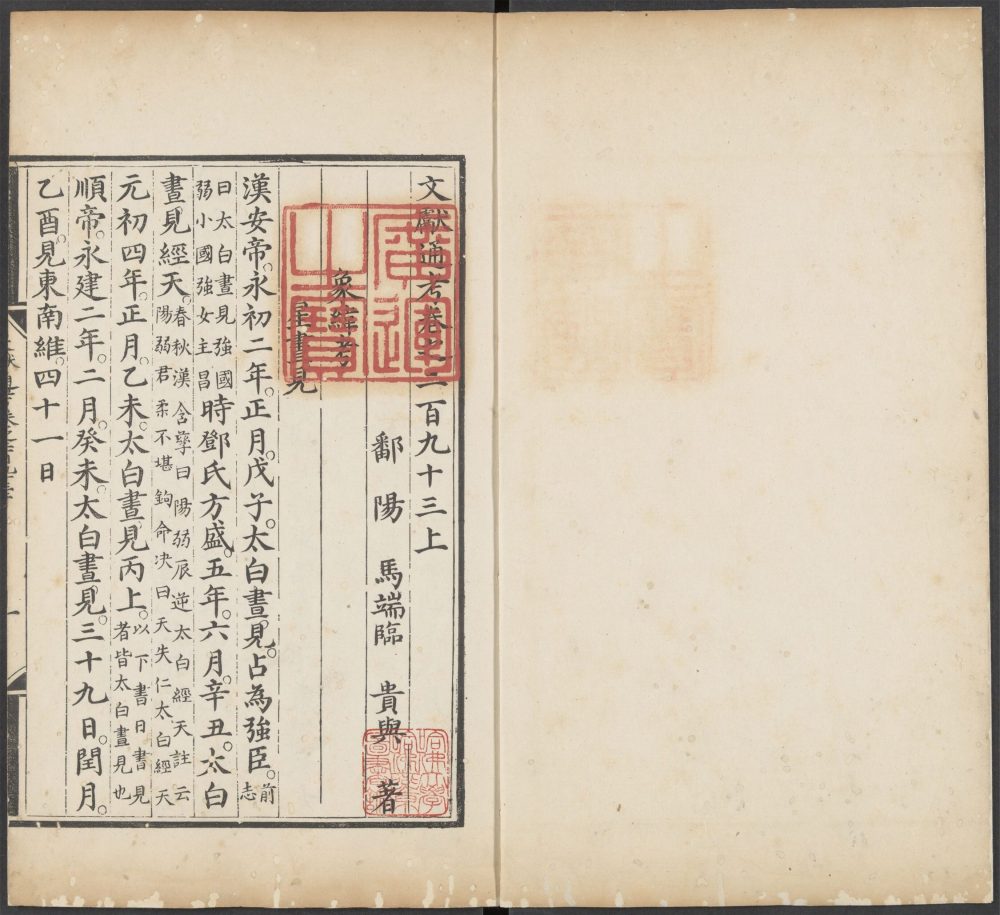 文獻通考卷之二百九十三上
鄱陽 馬端臨 貴與 著
象緯考
星晝見
漢安帝。永初二年。正月。戊子。太白晝見。占為強臣。前志
曰太白晝見強國弱小國強女主昌時鄧氏方盛。五年。六月。辛丑。太白
晝見經天。春秋漢含孳曰陽弱辰逆太白經天註云陽弱君柔不堪鉤命決曰天失仁太白經天
元初四年。正月。乙未。太白晝見丙上。以下書日書見者皆太白晝見也
順帝。永建二年。二月。癸未。太白晝見。三十九日。閏月。
乙酉。見東南維。四十一日
哈佛大學